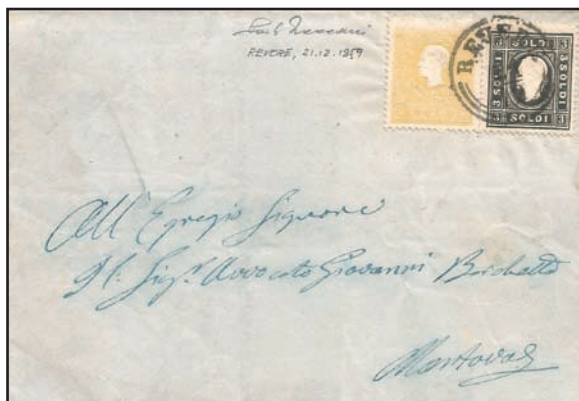 REVERE, 21.12.1859
REVERE
3 SOLDI 3
3 SOLDI
3 SOLDI
3 SOLDI 3
All' Egregio Signore
Sigr. Avvocato Giovanni
Mantova